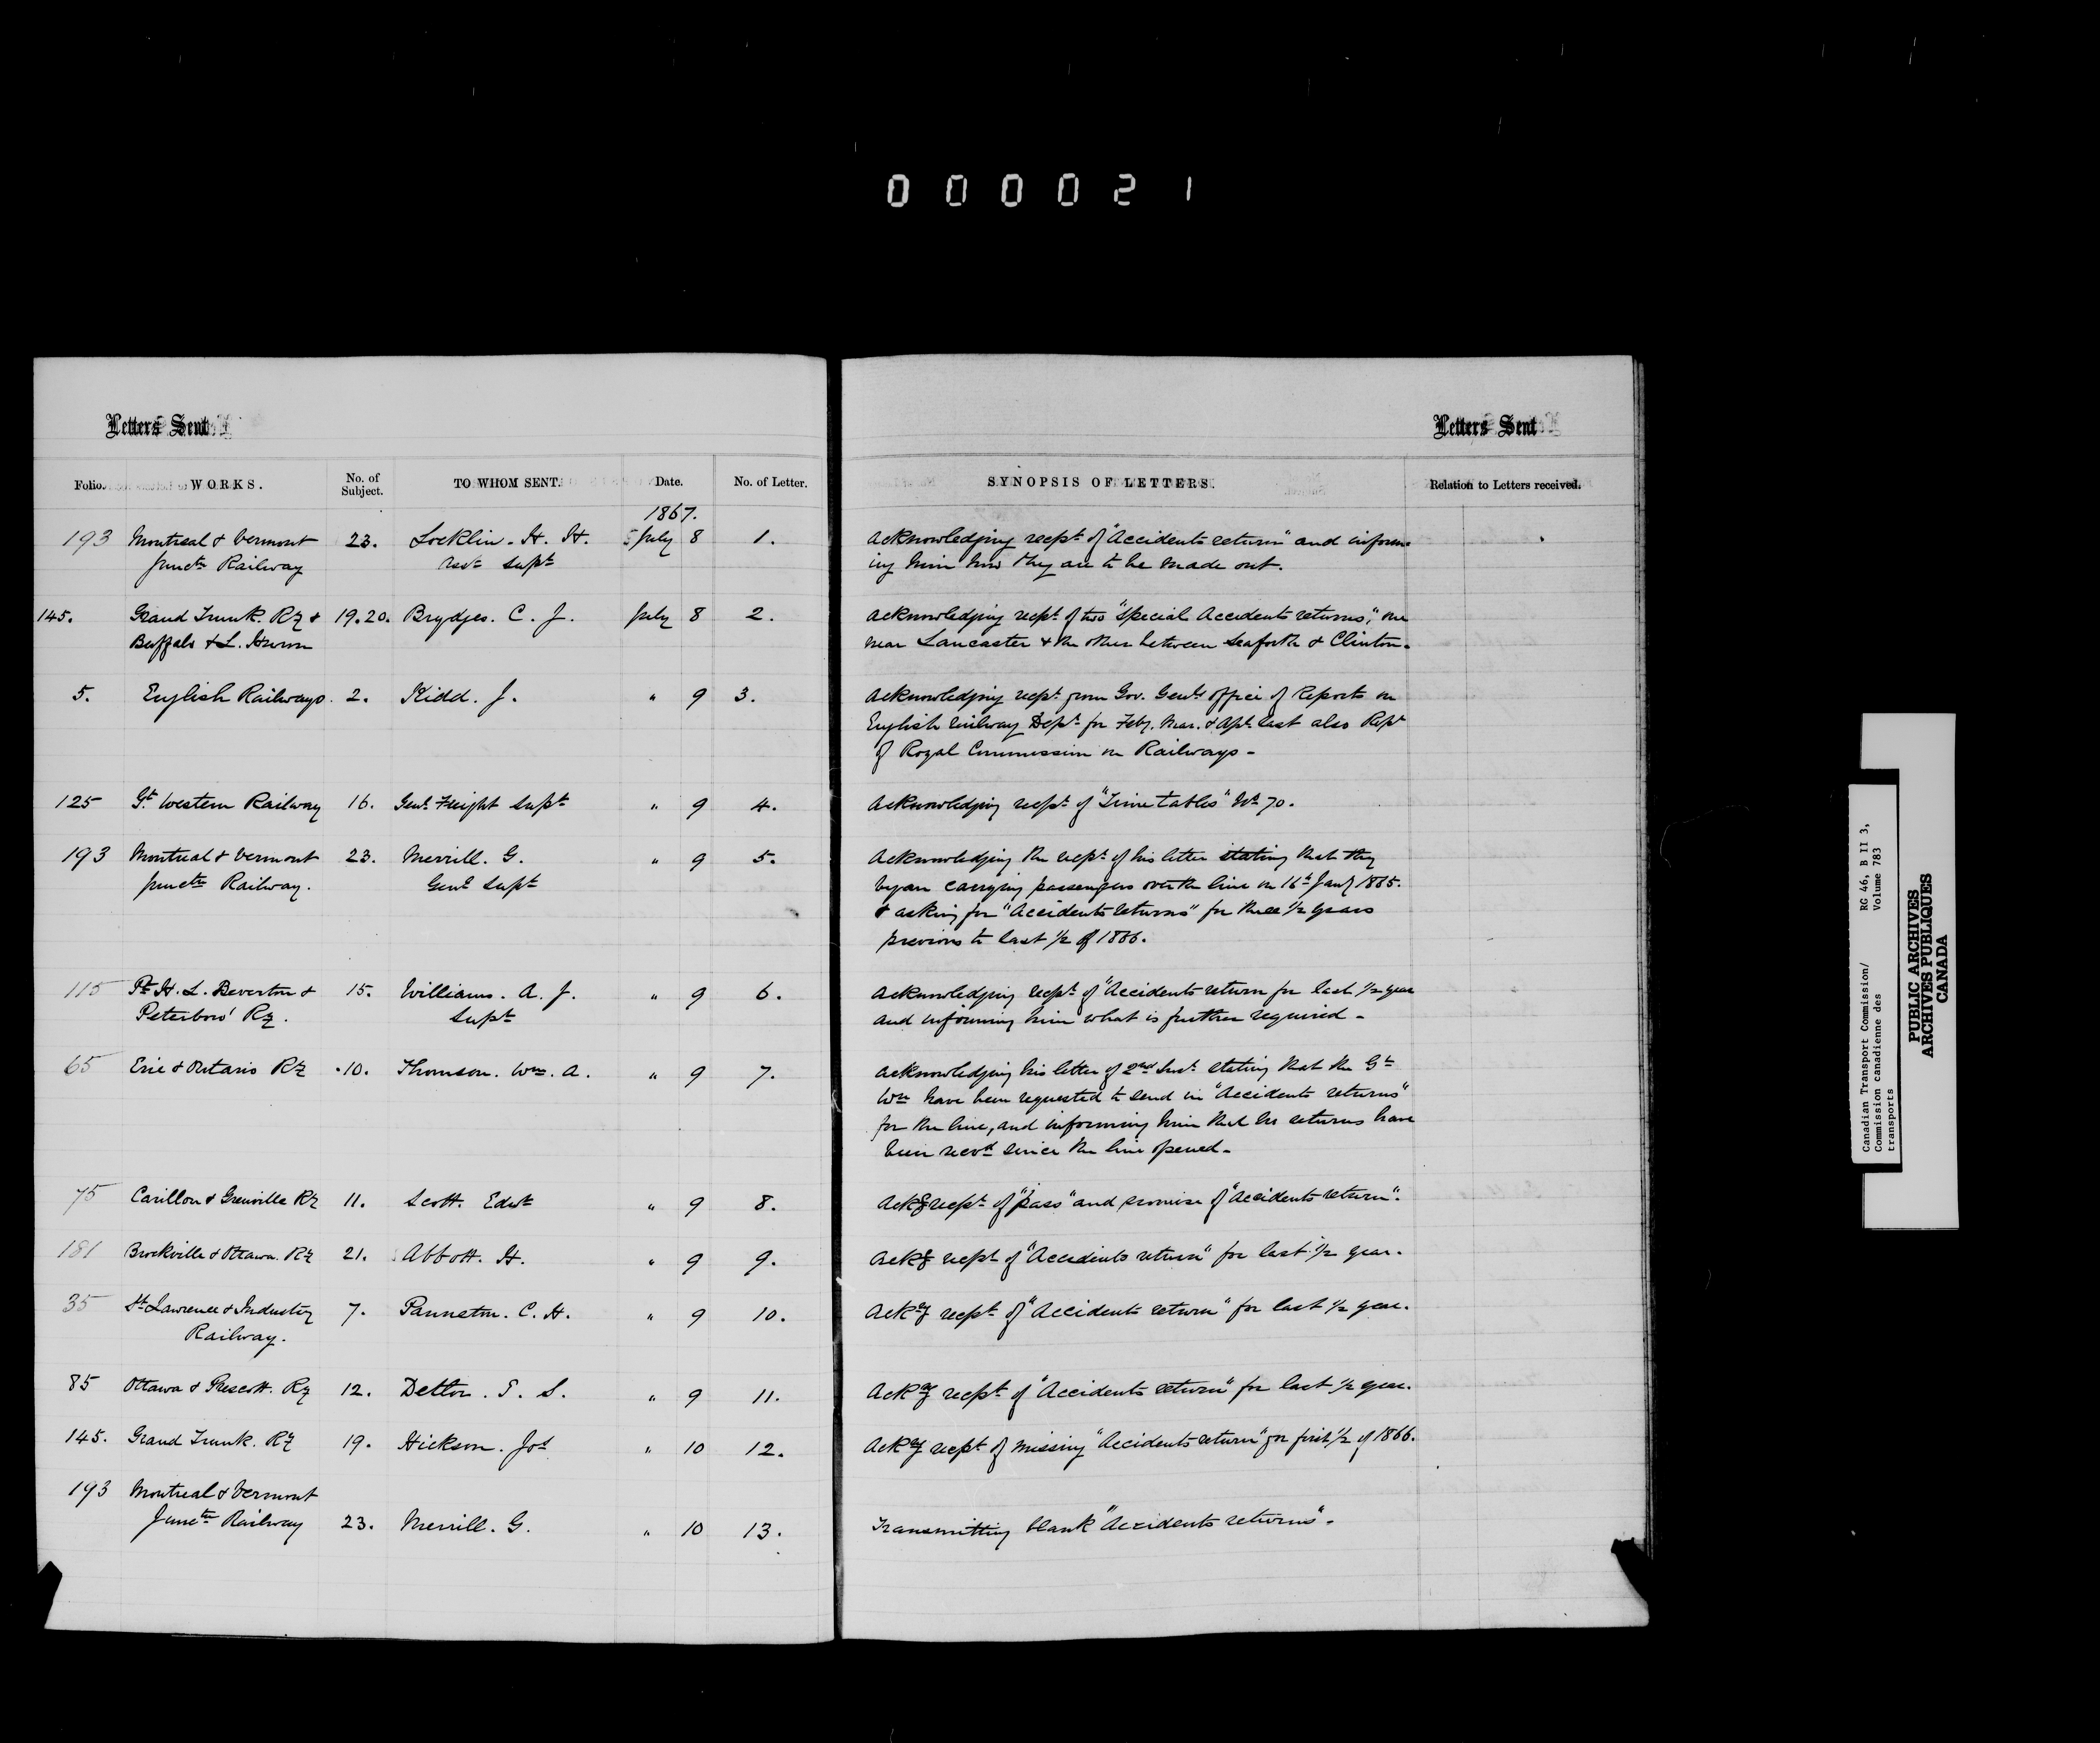 000021
Letters Sent
Letters Sent
Folio. WORKS. No. of Subject. TO WHOM SENT. Date. No. of Letter. SYNOPSIS OF LETTERS. Relation to Letters received.
1867.
193 Montreal & Vermont 23. Locklin. H. H. July 8 1. Acknowledging recpt of "Accidents return" and inform-
Junctn Railway Supt ing him how they are to be made out.
145. Grand Trunk. Ry & 19.20. Brydges. C. J. July 8 2. Acknowledging recpt of two "Special Accidents returns", one
Buffalo & L. Huron near Lancaster & the other between Seaforth & Clinton.
5. English Railways. 2. Kidd. J. " 9 3. Acknowledging recpt from Gov. Genls office of Reports on
English Railway Dept for Feby. Mar. & Apl. last also Rept
of Royal Commission on Railways -
125 Gt. Western Railway 16. Genl. Freight Supt " 9 4. Acknowledging recpt of "Time tables" No 70.
193 Montreal & Vermont 23. Merrill. G. " 9 5. Acknowledging the recpt of his letter stating that they
Junctn Railway. Genl Supt began carrying passengers over the line on 16th Jany 1865.
& asking for "Accidents returns" for three 1/2 years
previous to last 1/2 of 1866.
115 Pt. H. L. Beverton & 15. Williams. A. J. " 9 6. Acknowledging recpt of "Accidents return for last 1/2 year
Peterboro' Ry. Supt and informing him what is further required -
65 Erie & Ontario Ry 10. Thomson. Wm. A. " 9 7. Acknowledging his letter of 2nd Inst. stating that the Gt
Wn have been requested to send in "Accidents returns"
for the line, and informing him that no returns have
been recvd since the line opened -
75 Carillon & Grenville Ry 11. Scott. Edwd " 9 8. Ackg recpt of "pass" and promise of "Accidents return".
181 Brockville & Ottawa. Ry 21. Abbott. H. " 9 9. Ackg recpt of "Accidents return" for last 1/2 year.
35 St. Lawrence & Industry 7. Panneton. C. H. " 9 10. Ackg recpt of "Accidents return" for last 1/2 year.
Railway.
85 Ottawa & Prescott. Ry 12. Detlor. T. S. " 9 11. Ackg recpt of "Accidents return" for last 1/2 year.
145. Grand Trunk. Ry 19. Hickson. Jos " 10 12. Ackg recpt of missing "Accidents return" for first 1/2 of 1866.
193 Montreal & Vermont
Junctn Railway 23. Merrill. G. " 10 13. Transmitting blank "Accidents returns".
Canadian Transport Commission/ RG 46, B II 3,
Commission canadienne des Volume 783
transports
PUBLIC ARCHIVES
ARCHIVES PUBLIQUES
CANADA